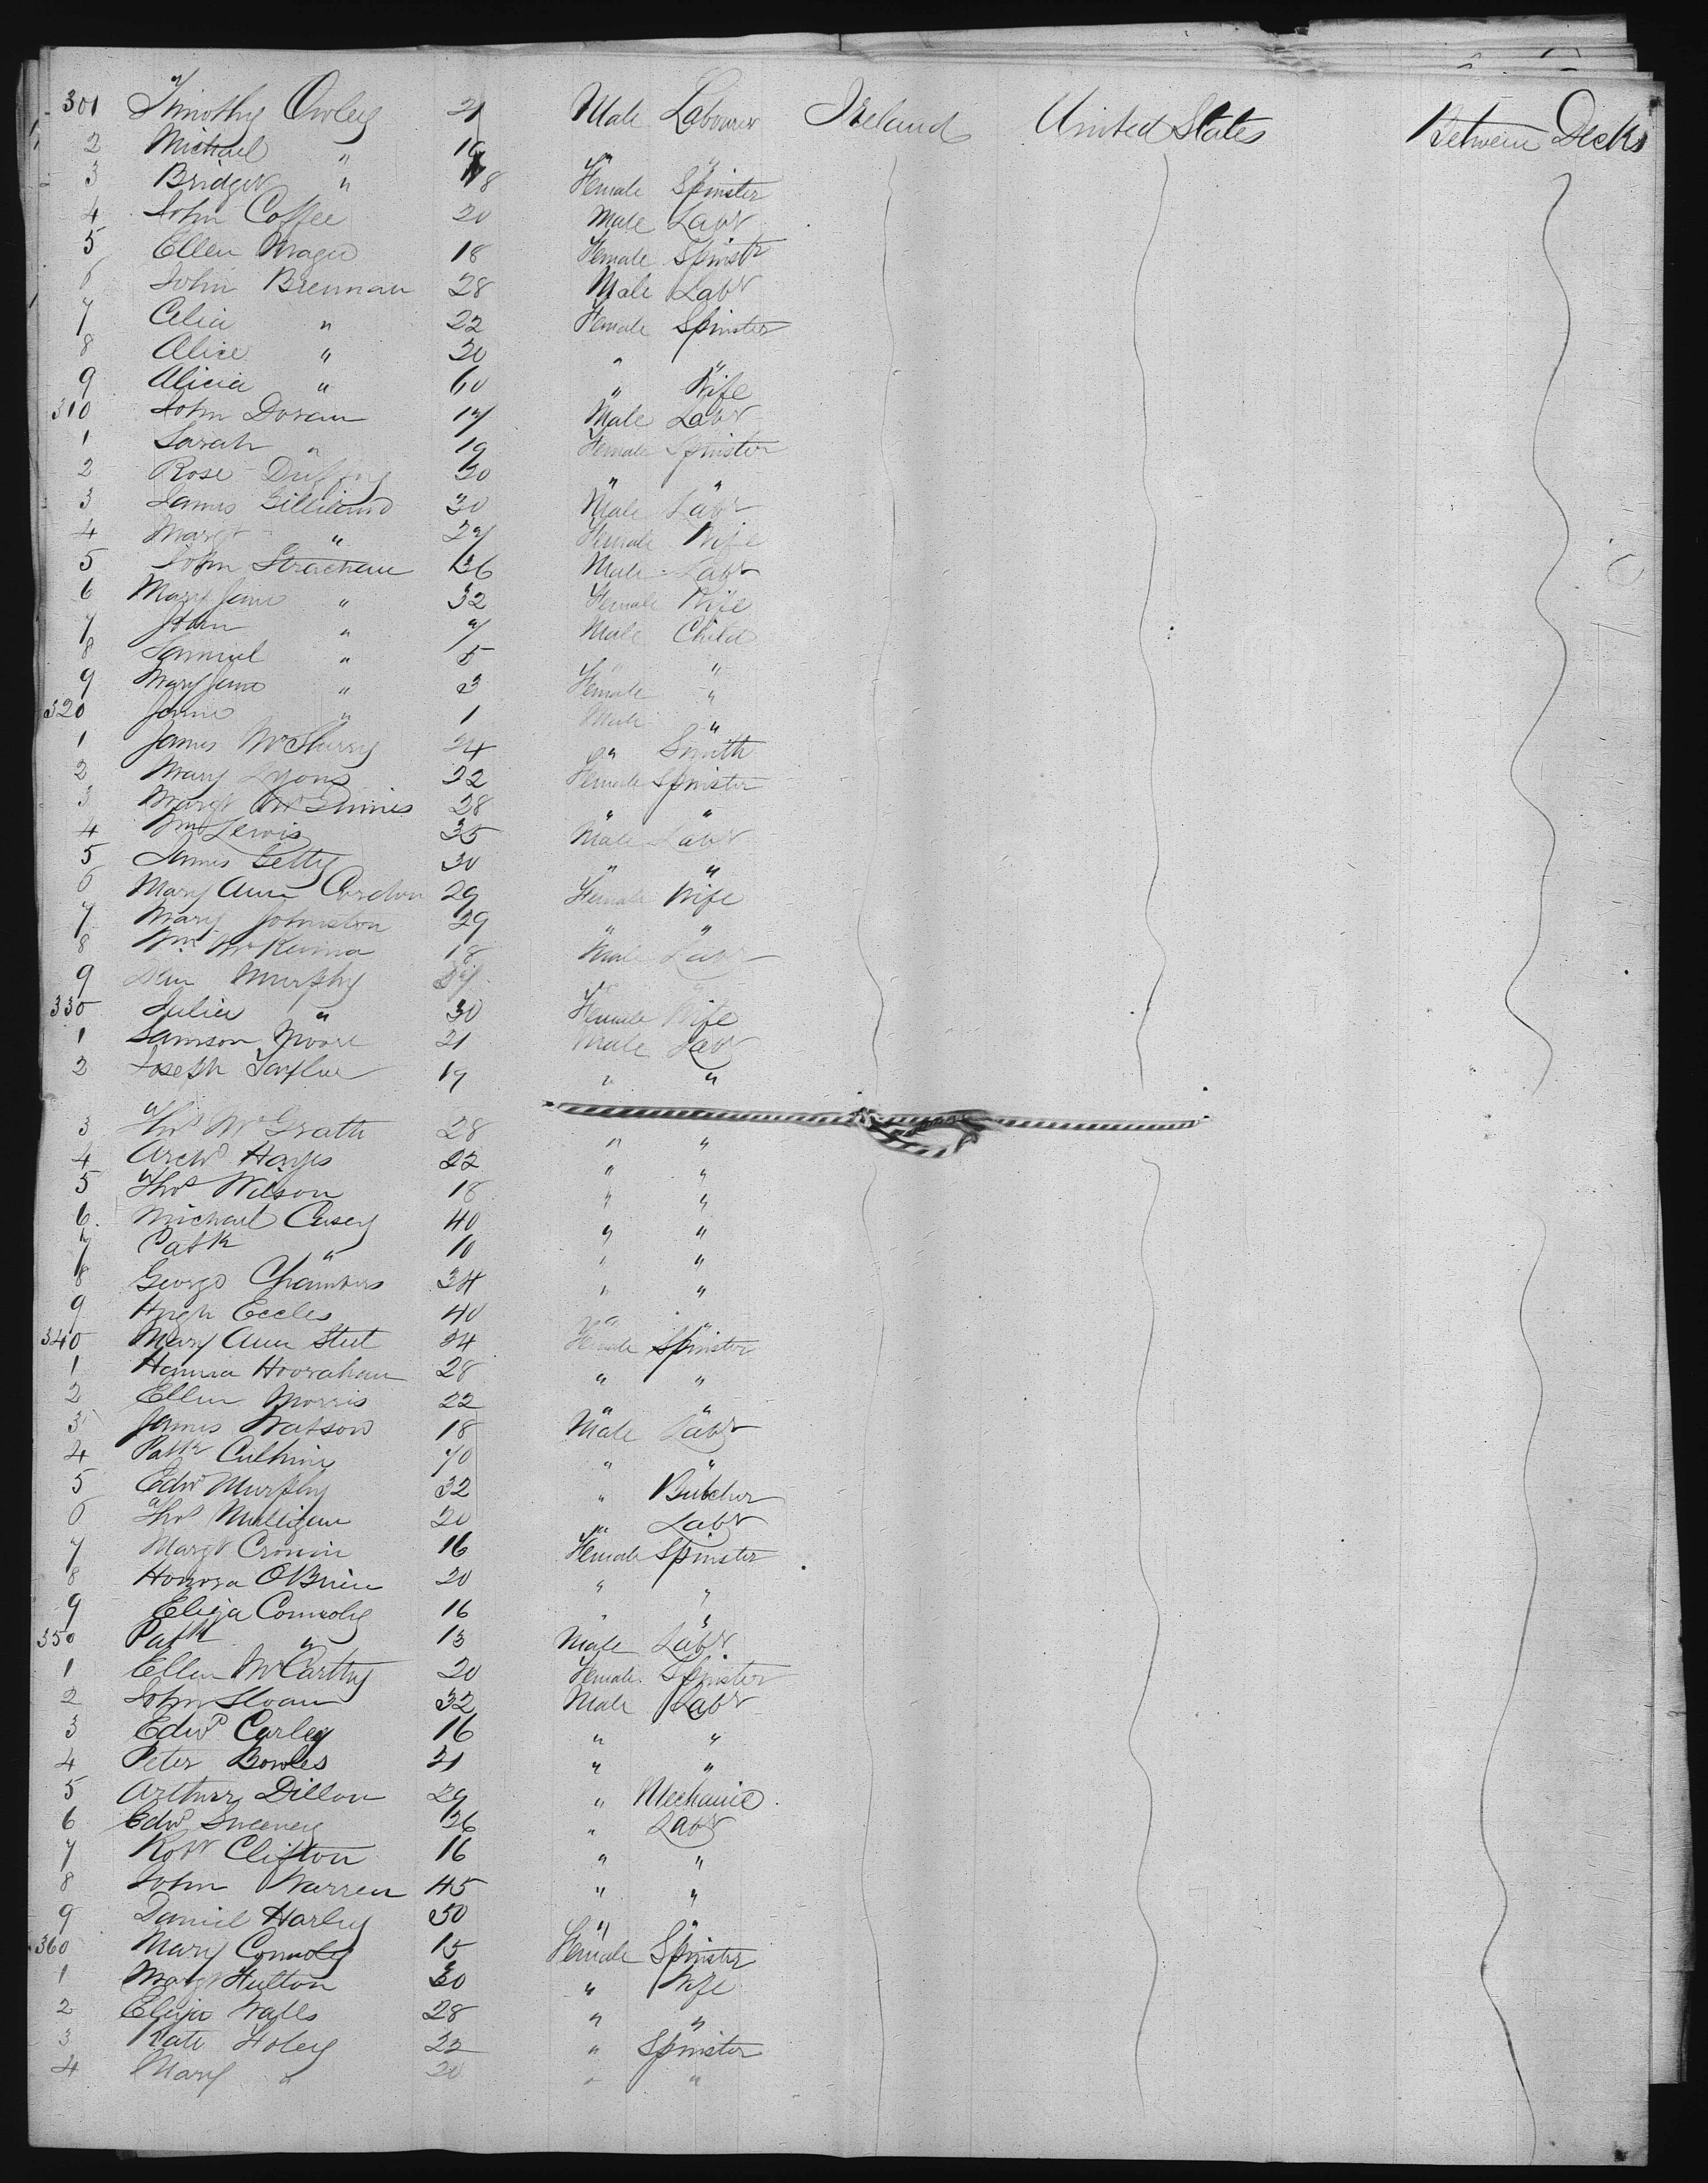 301 Timothy Owley 21 Male Labourer Ireland United States Between Decks
2 Michael " " "
3 Bridget " 18 Female Spinster
4 John Coffee 20 Male Labr
5 Ellen Magee 18 Female Spinstr
6 John Brennan 28 Male Labr
7 Celia " 22 Female Spinster
8 Alice " 20 " "
9 Alicia " 60 " Wife
310 John Doran 17 Male Labr
1 Sarah " 19 Female Spinster
2 Rose 30 " "
3 James Gilliland 30 Male Labr
4 Margt " 27 Female Wife
5 John Strachan 36 Male Labr
6 Mary Jane " 32 Female Wife
7 John " 7 Male Child
8 Samuel " 5 " "
9 Mary Jane " 3 Female "
320 " 1 Male "
1 James McSherry 24 " Smith
2 Mary Lyons 22 Female Spinster
3 Margt McGinnis 28 " "
4 Wm Lewis 35 Male Labr
5 James Getty 30 " "
6 Mary Ann 29 Female Wife
7 Mary Johnston 29 " "
8 Wm McKenna 18 Male Labr
9 Dan Murphy " "
330 Julia " 30 Female Wife
1 Samson Moore 21 Male Labr
2 Joseph Taylor 19 " "
3 Thos McGrath 28 " "
4 Archd Hayes 22 " "
5 Thos Wilson 18 " "
6 Michael Casey 40 " "
7 Patk " 10 " "
8 George Chambers 34 " "
9 Hugh Eccles 40 " "
340 Mary Ann 24 Female Spinster
1 Hanna Hoorahan 28 " "
2 Ellen Morris 22 " "
3 James Watson 18 Male Labr
4 Patk 40 " "
5 Edwd Murphy 32 " Butcher
6 Thos Mulligan 20 " Labr
7 Margt Cronin 16 Female Spinster
8 Honora OBrien 20 " "
9 Eliza Connoly 16 " "
350 Patk " 13 Male Labr
1 Ellen McCarthy 20 Female Spinster
2 John Sloan 32 Male Labr
3 Edwd Curley 16 " "
4 Peter Bowles 21 " "
5 Arthur Dillon 29 " Mechanic
6 Edwd Sweeney 36 " Labr
7 Robt Clifton 16 " "
8 John Warren 45 " "
9 Daniel Harley 50 " "
360 Mary Connoly 15 Female Spinster
1 Margt Hutton 30 " Wife
2 Eliza Walls 28 " "
3 Kate Foley 22 " Spinster
4 Mary " 20 " "